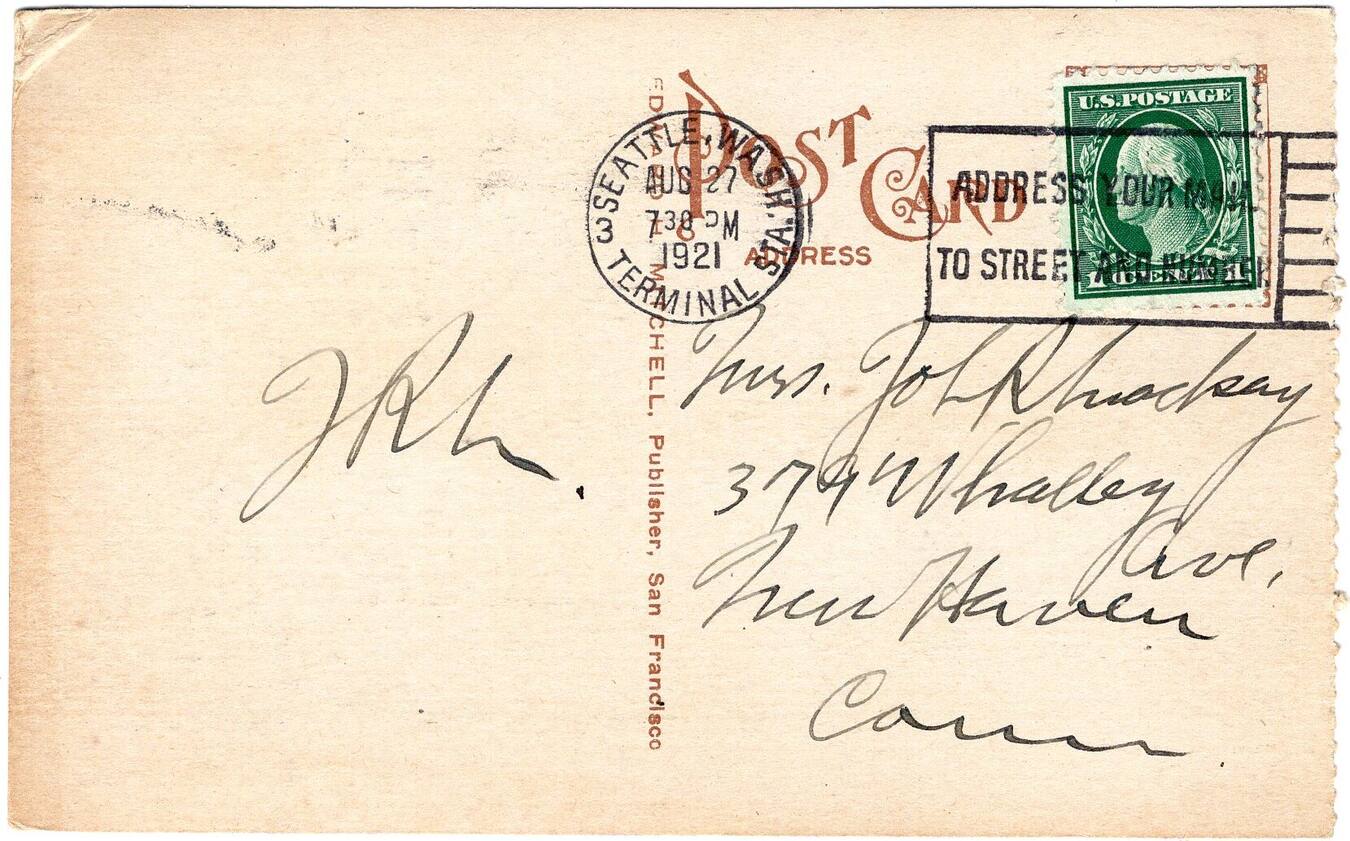 POST CARD
ADDRESS
SEATTLE, WASH.
AUG 27
7 30 PM
1921
3
TERMINAL STA.
ADDRESS YOUR MAIL
TO STREET AND NUMBER
U.S. POSTAGE
1 CENT 1
MITCHELL, Publisher, San Francisco
Mrs. Joh R
379 Whalley
Ave,
New Haven
Conn.